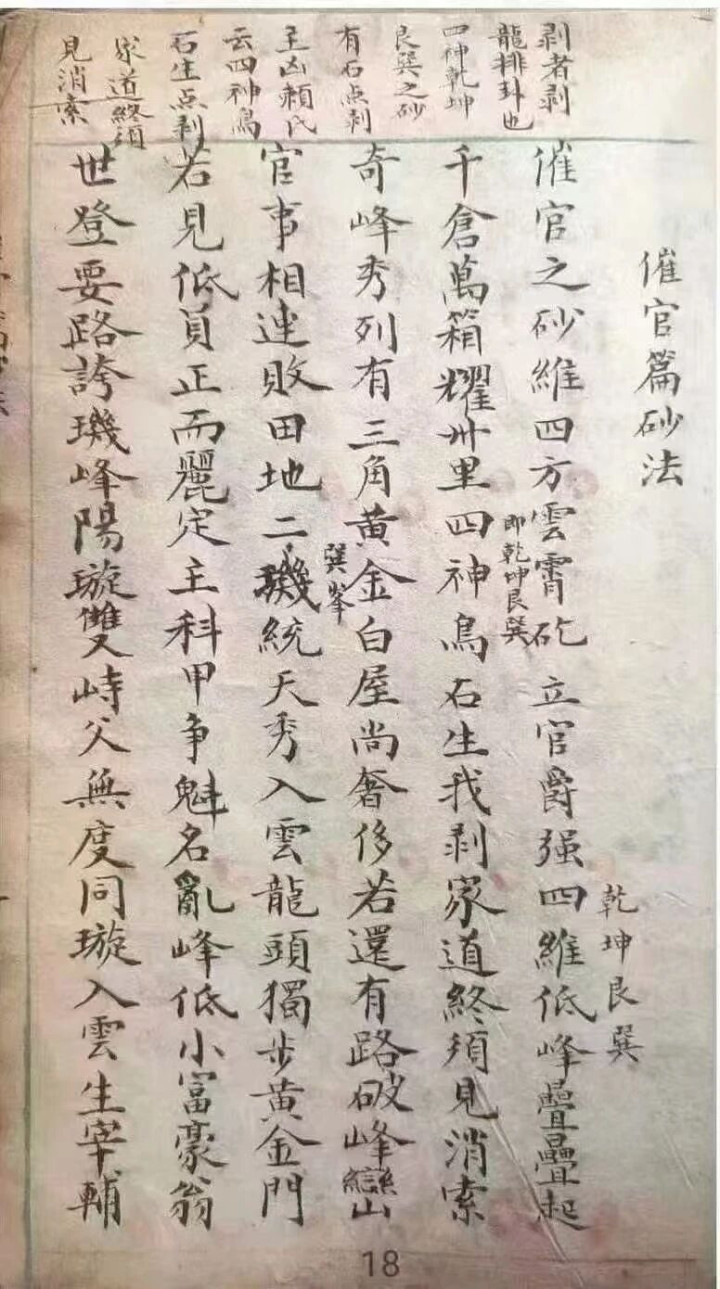 剥者剥
龍排卦也
四神乾坤
艮巽之砂
有石点剥
主凶賴氏
云四神鳥
石生点剥
家道終須
見消索
催官篇砂法
催官之砂維四方雲霄矻立官爵强四維低峰疊疊起
乾坤艮巽
千倉萬箱耀州里四神鳥石生我剥家道終須見消索
即乾坤艮巽
奇峰秀列有三角黃金白屋尚奢侈若還有路破峰巒
官事相連敗田地二璣統天秀入雲龍頭獨步黃金門
巽峯
若見低員正而麗定主科甲争魁名亂峰低小富豪翁
世登要路誇璣峰陽璇雙峙父無度同璇入雲生宰輔
18